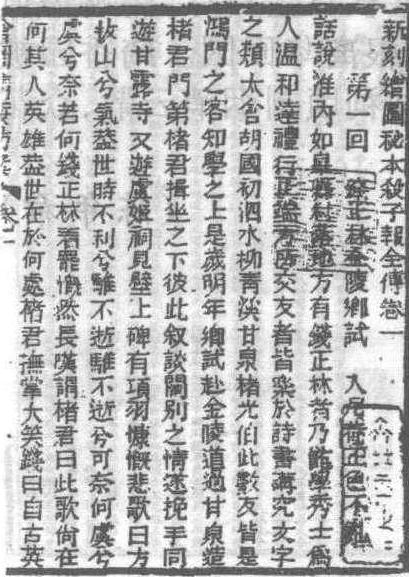 新刻繪圖秘本殺子報全傳卷一
第一回 錢正林金陵鄉試
話說淮內如皐縣 地方有錢正林者乃 秀士為
人溫和達禮行 所交友者皆樂於詩書講究文字
之類太倉胡國初泗水柳青溪甘泉楮光伯此數友皆是
鴻門之客知學之上是歲明年鄉試赴金陵道過甘泉造
楮君門第楮君揖坐之下彼此叙談闊別之情遂挽手同
遊甘露寺又遊虞姬祠見壁上碑有項羽慷慨悲歌曰力
拔山兮氣蓋世時不利兮騅不逝騅不逝兮可奈何虞兮
虞兮奈若何錢正林看罷慨然長嘆謂楮君曰此歌尚在
何其人英雄蓋世在於何處楮君撫掌大笑錢曰自古英